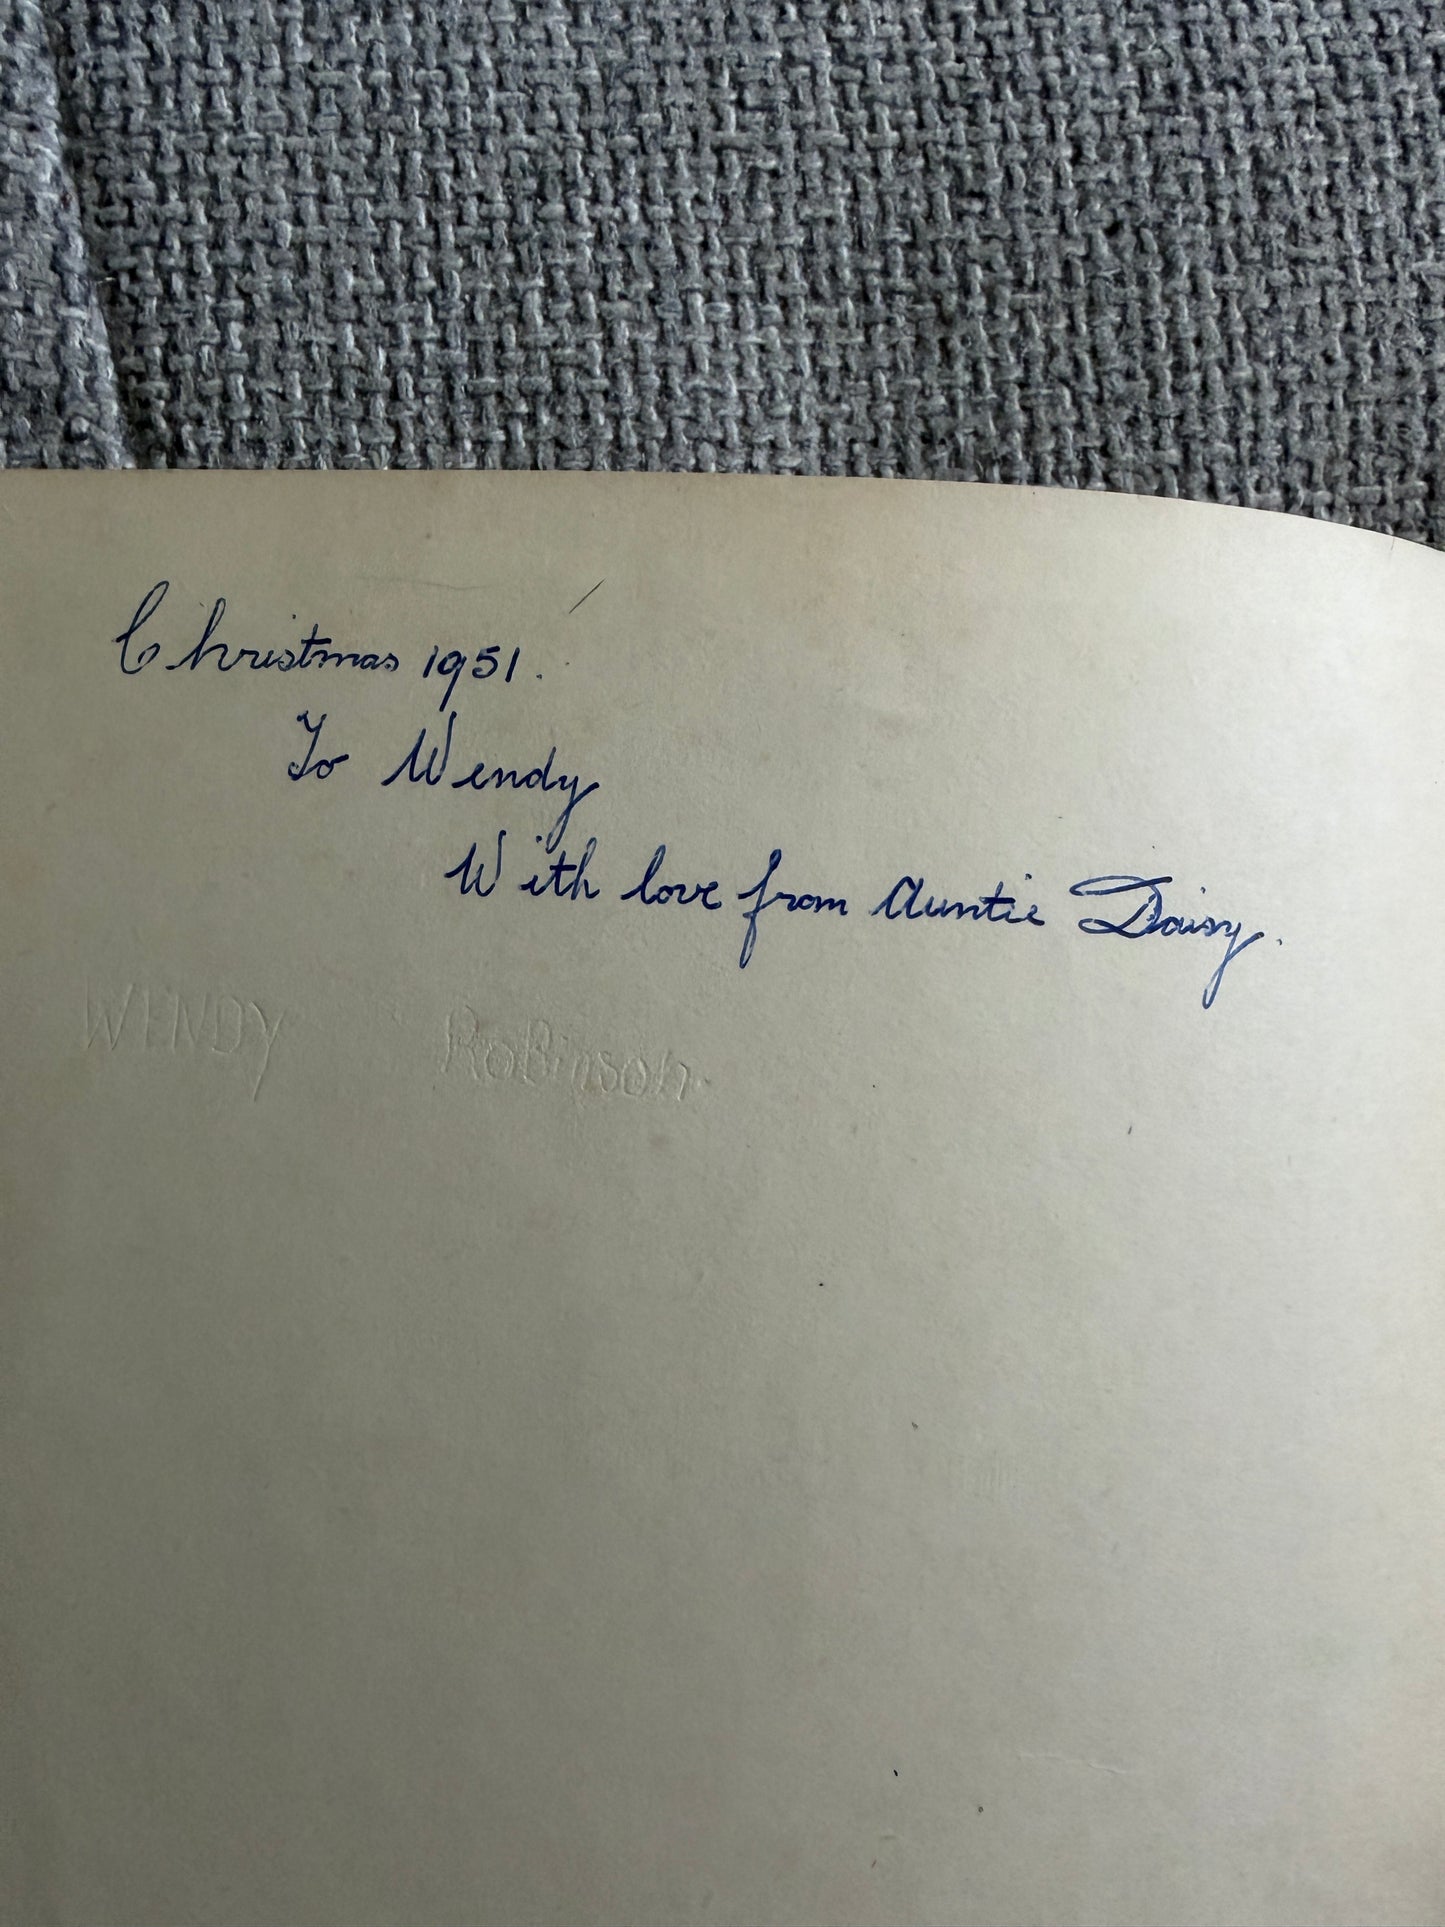 Christmas 1951.
To Wendy
With love from Auntie Daisy.
WENDY Robinson.